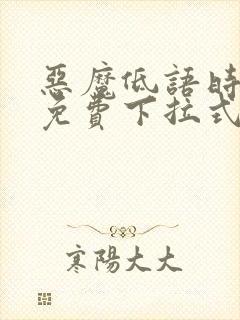 惡魔低語時
免費下拉式
寒陽大大